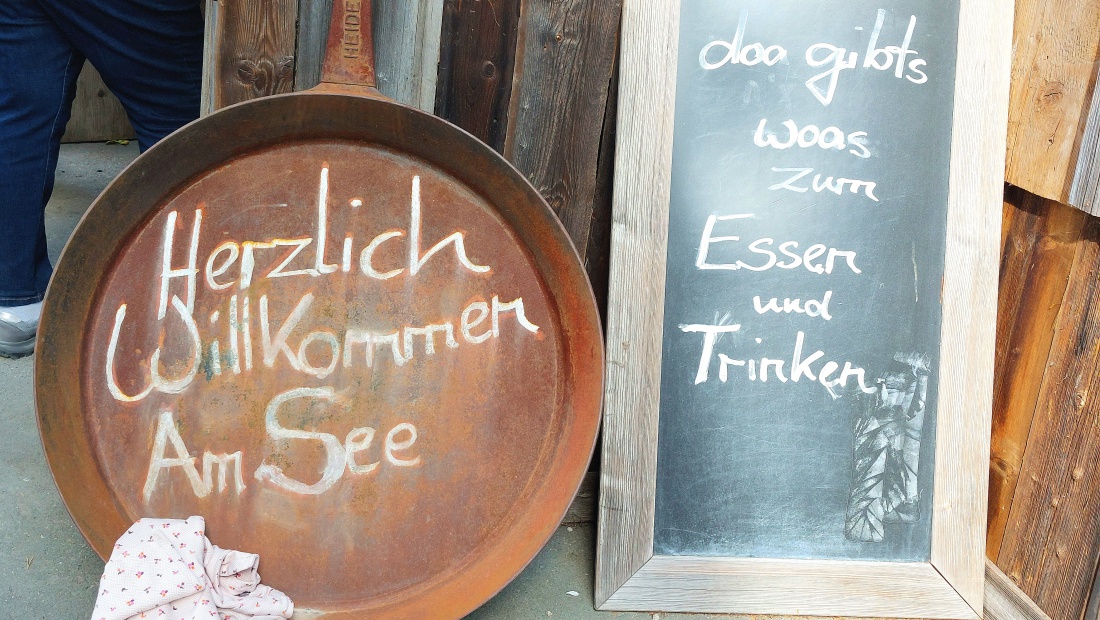 HEIDE
Herzlich
Willkommen
Am See
doa gibts
woas
zum
Essen
und
Trinken